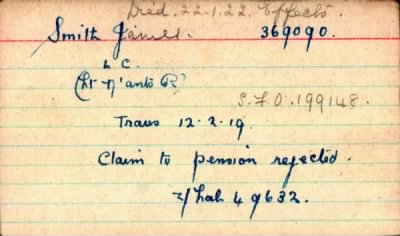 Died. 22.1.22. Effects.
Smith James. 369090.
L C.
(Lt N'ants R)
S.F.O. 199148.
Trans 12-2-19
Claim to pension rejected.
4 9632.